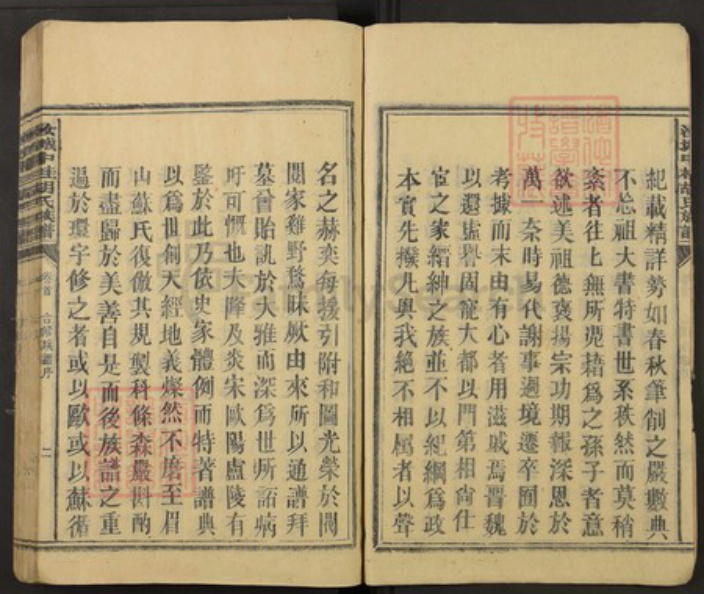 紀載精詳勢如春秋筆削之嚴數典
不忘祖大書特書世系秩然而莫稍
紊者往上無所凴藉為之孫子者意
欲述美祖德褒揚宗功期報深恩於
萬一奈時易代謝事過境遷卒囿於
考據而末由有心者用滋戚焉晉魏
以還虛譽固寵大都以門第相尙仕
宦之家縉紳之族並不以紀綱為政
本實先撥凡與我絕不相属者以聲
名之赫奕每援引附和圖光榮於閥
閱家雞野鶩昧厥由來所以通譜拜
墓會貽譏於大雅而深為世所詬病
吁可慨也大降及炎宋歐陽盧陵有
鑒於此乃依史家體例而特著譜典
以為世創天經地義燦然不磨至眉
山蘇氏復倣其規製科條森嚴斟酌
而盡歸於美善自是而後族譜之重
遍於環宇修之者或以歐或以蘇循
汝城中村胡氏族譜
卷首
二